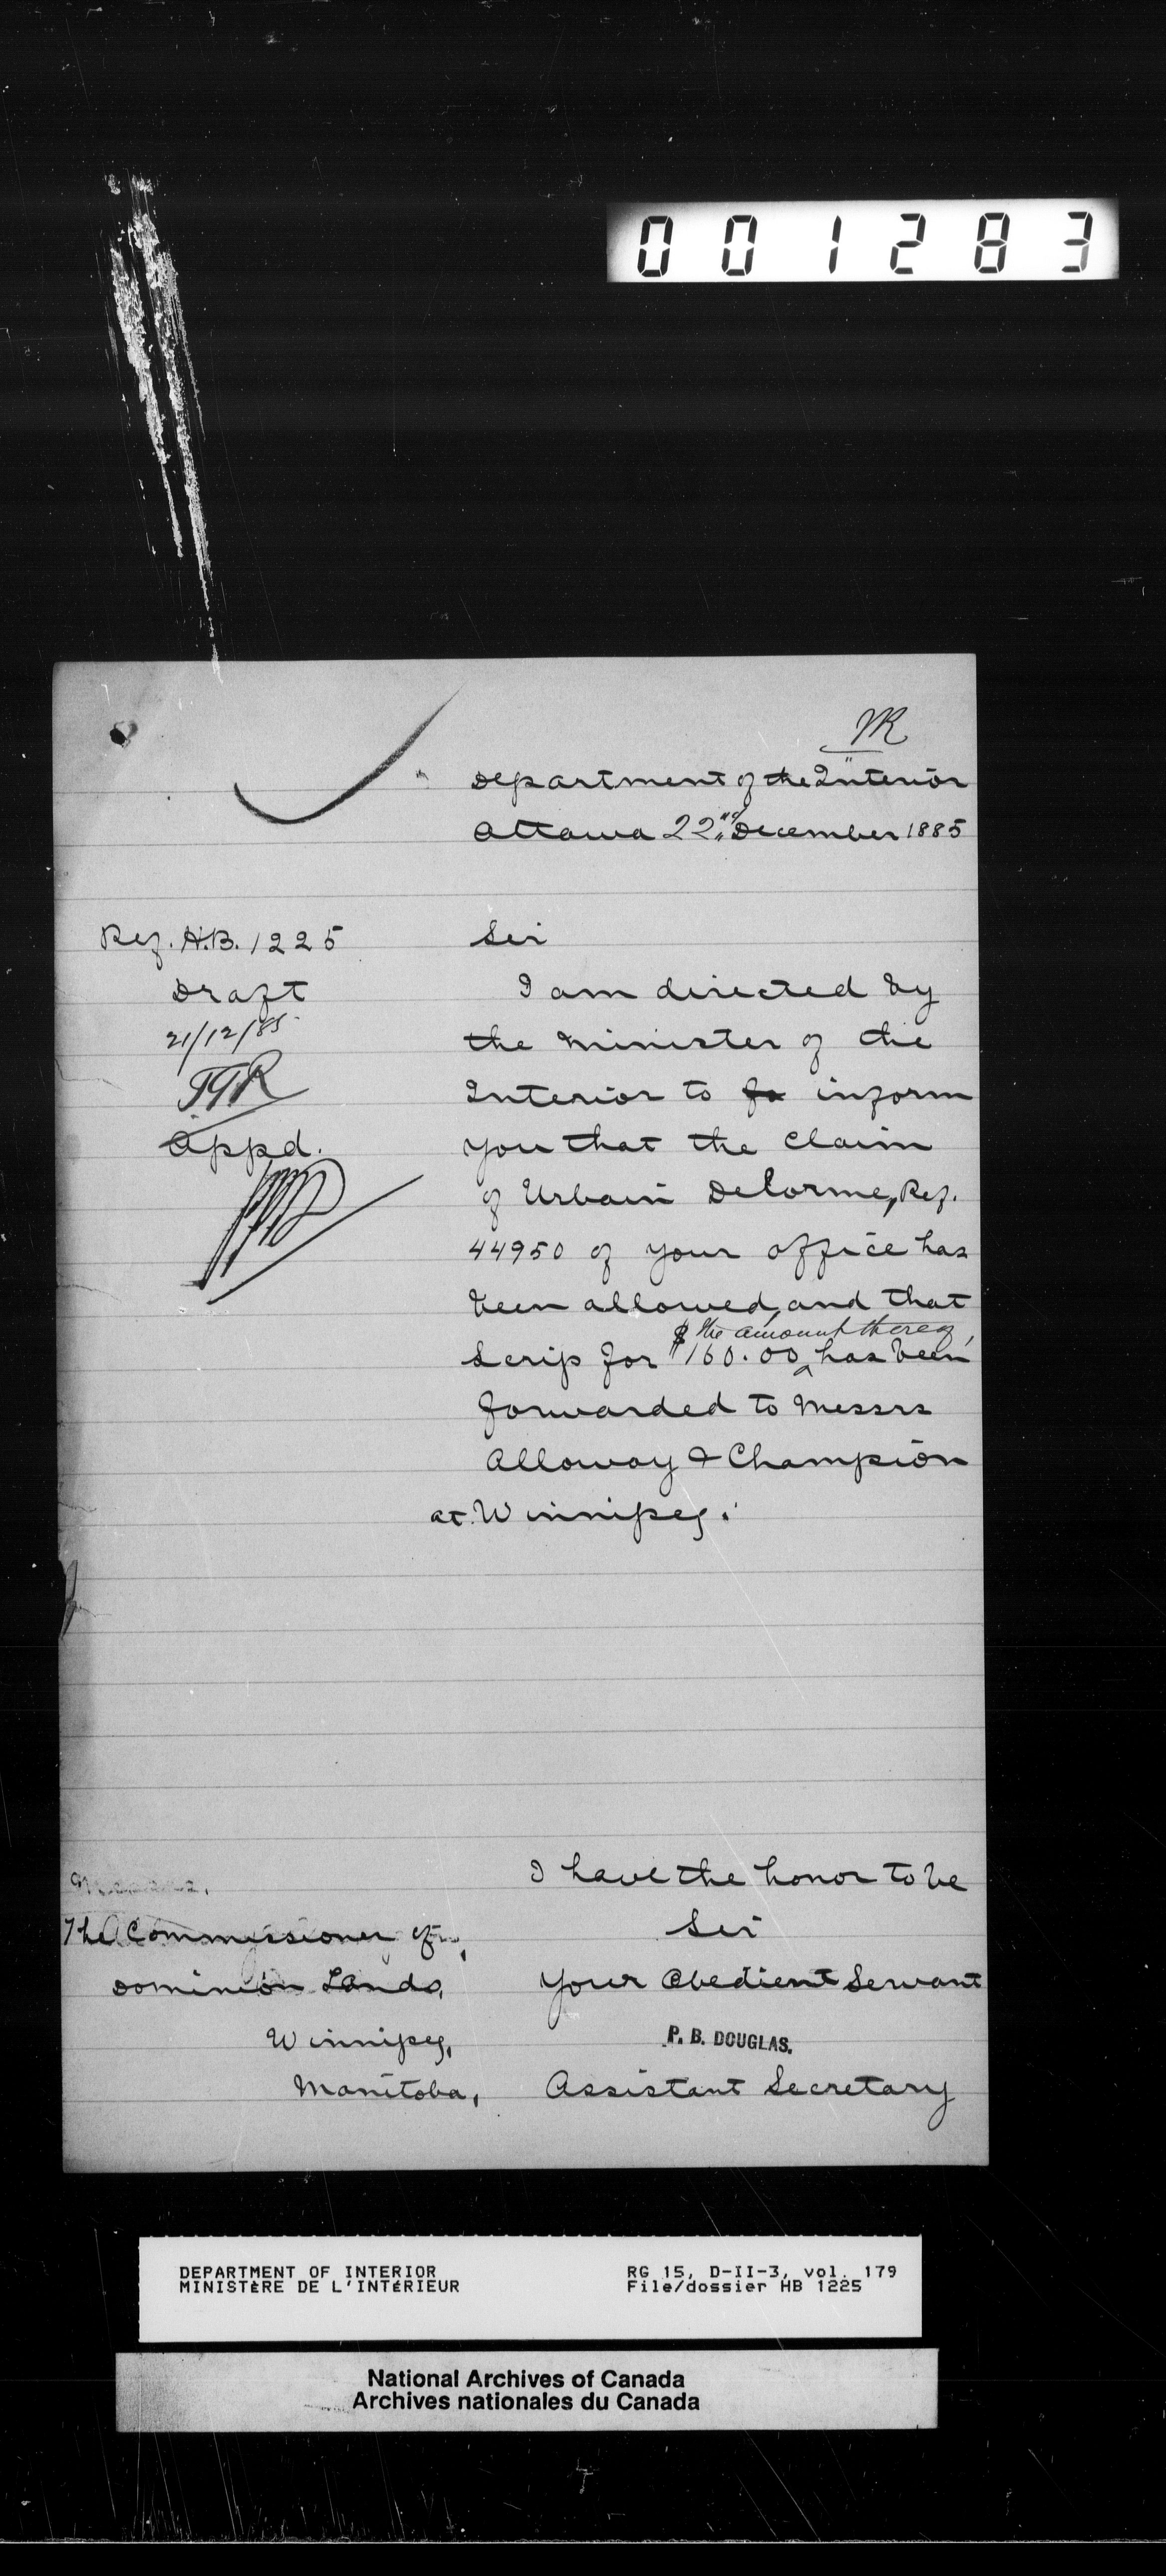 001283
Department of the Interior
Ottawa 22nd December 1885
Ref. H.B. 1225
Draft
21/12/85
Appd.
Sir
I am directed by
the Minister of the
Interior to fo inform
you that the claim
of Urbain Delorme, Ref.
44950 of your office has
been allowed, and that
the amount thereof,
Scrip for $160.00 has been
forwarded to Messrs
Alloway & Champion
at Winnipeg.
I have the honor to be
Sir
Your Obedient Servant
P. B. DOUGLAS.
Assistant Secretary
The Commissioner of
Dominion Lands,
Winnipeg,
Manitoba,
DEPARTMENT OF INTERIOR
MINISTÈRE DE L'INTÉRIEUR
RG 15, D-II-3, vol. 179
File/dossier HB 1225
National Archives of Canada
Archives nationales du Canada